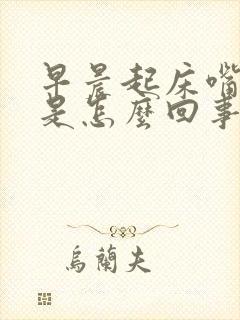 早晨起床嘴
是怎麼回事
烏蘭夫